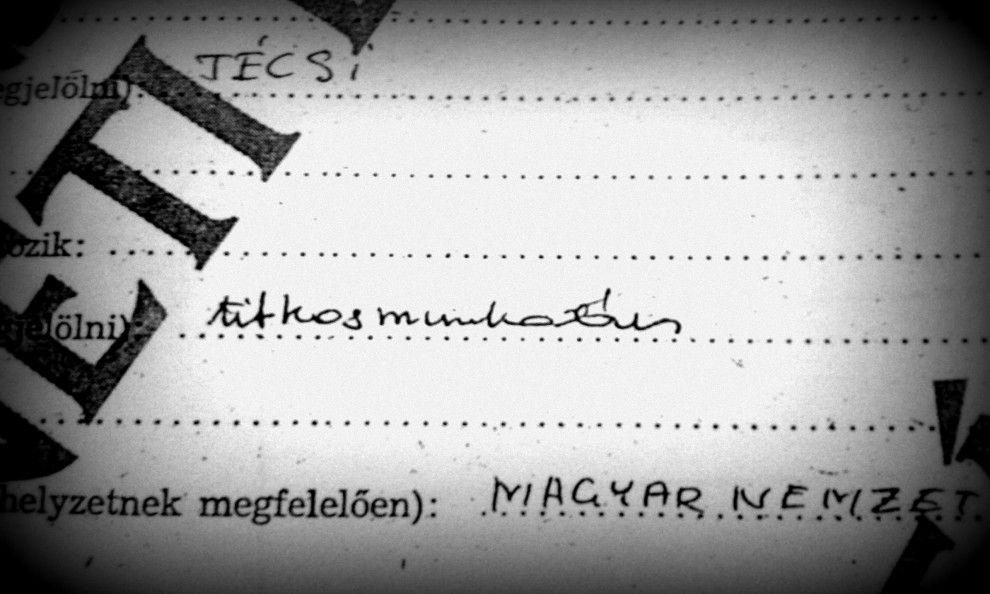 egjelölni): TÉCSi
ozik:
gjelölni): titkosmunkatárs
helyzetnek megfelelően): MAGYAR NEMZET